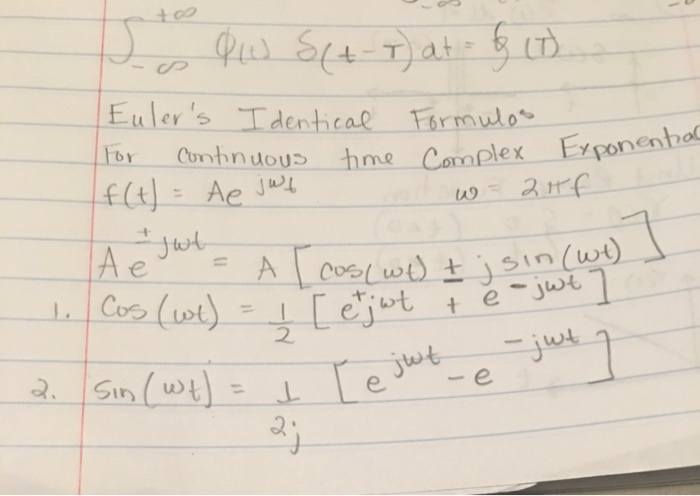 ∫_{-∞}^{+∞} φ(t) δ(t-T) dt = φ(T)
Euler's Identical Formulas
For continuous time Complex Exponential
f(t) = Ae^{jωt} ω = 2πf
Ae^{±jωt} = A [cos(ωt) ± j sin(ωt)]
1. Cos(ωt) = 1/2 [e^{+jωt} + e^{-jωt}]
2. Sin(ωt) = 1/2j [e^{jωt} - e^{-jωt}]